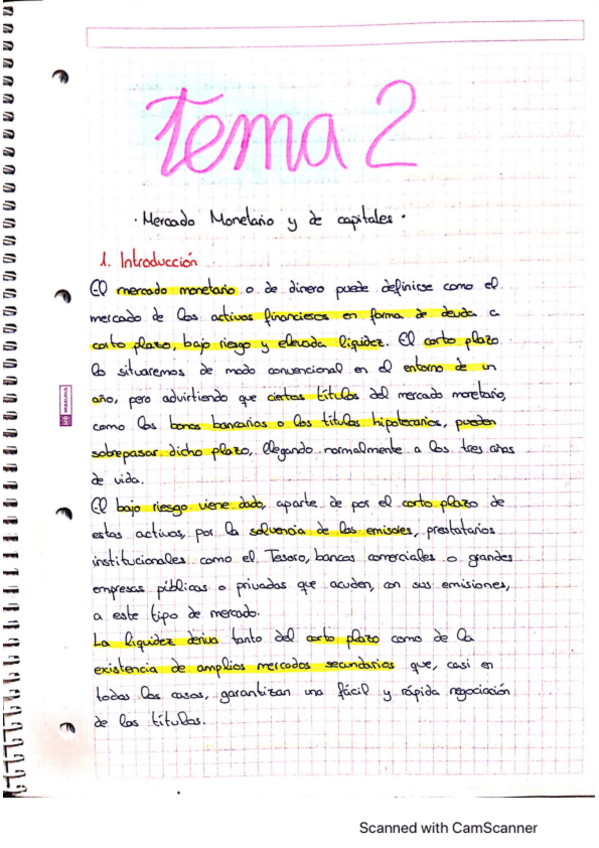 Tema 2
· Mercado Monetario y de capitales ·
1. Introducción
El mercado monetario o de dinero puede definirse como el
mercado de los activos financieros en forma de deuda a
corto plazo, bajo riesgo y elevada liquidez. El corto plazo
lo situaremos de modo convencional en el entorno de un
año, pero advirtiendo que ciertos títulos del mercado monetario,
como los bonos bancarios o los títulos hipotecarios, pueden
sobrepasar dicho plazo, llegando normalmente a los tres años
de vida.
El bajo riesgo viene dado, aparte de por el corto plazo de
estos activos, por la solvencia de los emisores, prestatarios
institucionales como el Tesoro, bancos comerciales o grandes
empresas públicas o privadas que acuden, con sus emisiones,
a este tipo de mercado.
La liquidez deriva tanto del corto plazo como de la
existencia de amplios mercados secundarios que, casi en
todos los casos, garantizan una fácil y rápida negociación
de los títulos.
Scanned with CamScanner